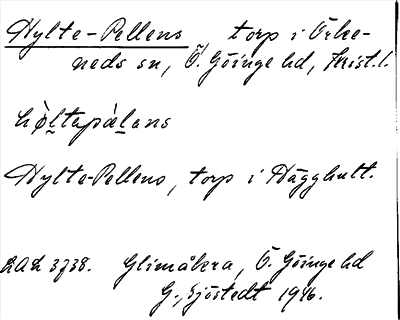 Hylte-Pellens torp i Örke-
neds sn, Ö. Göinge hd, Krist. l.
hø̀ltapæ̀lans
Hylte-Pellens, torp i Hägghult.
LAL 3738. Glimåkra, Ö. Göinge hd
G. Sjöstedt 1946.